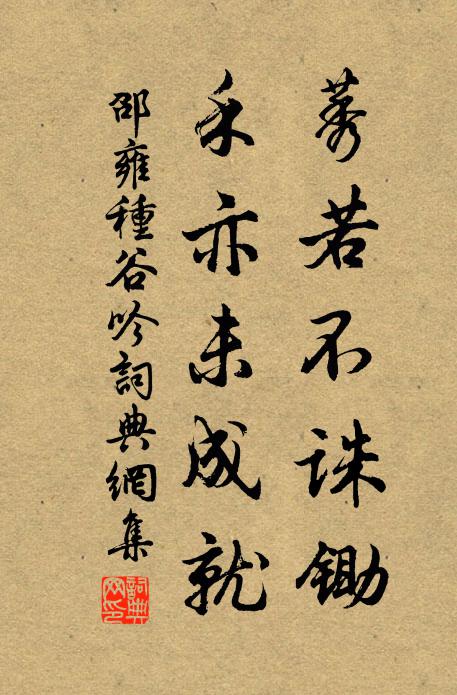 莠若不誅鋤
禾亦未成就
邵雍種谷吟詞典網集
詞典网印